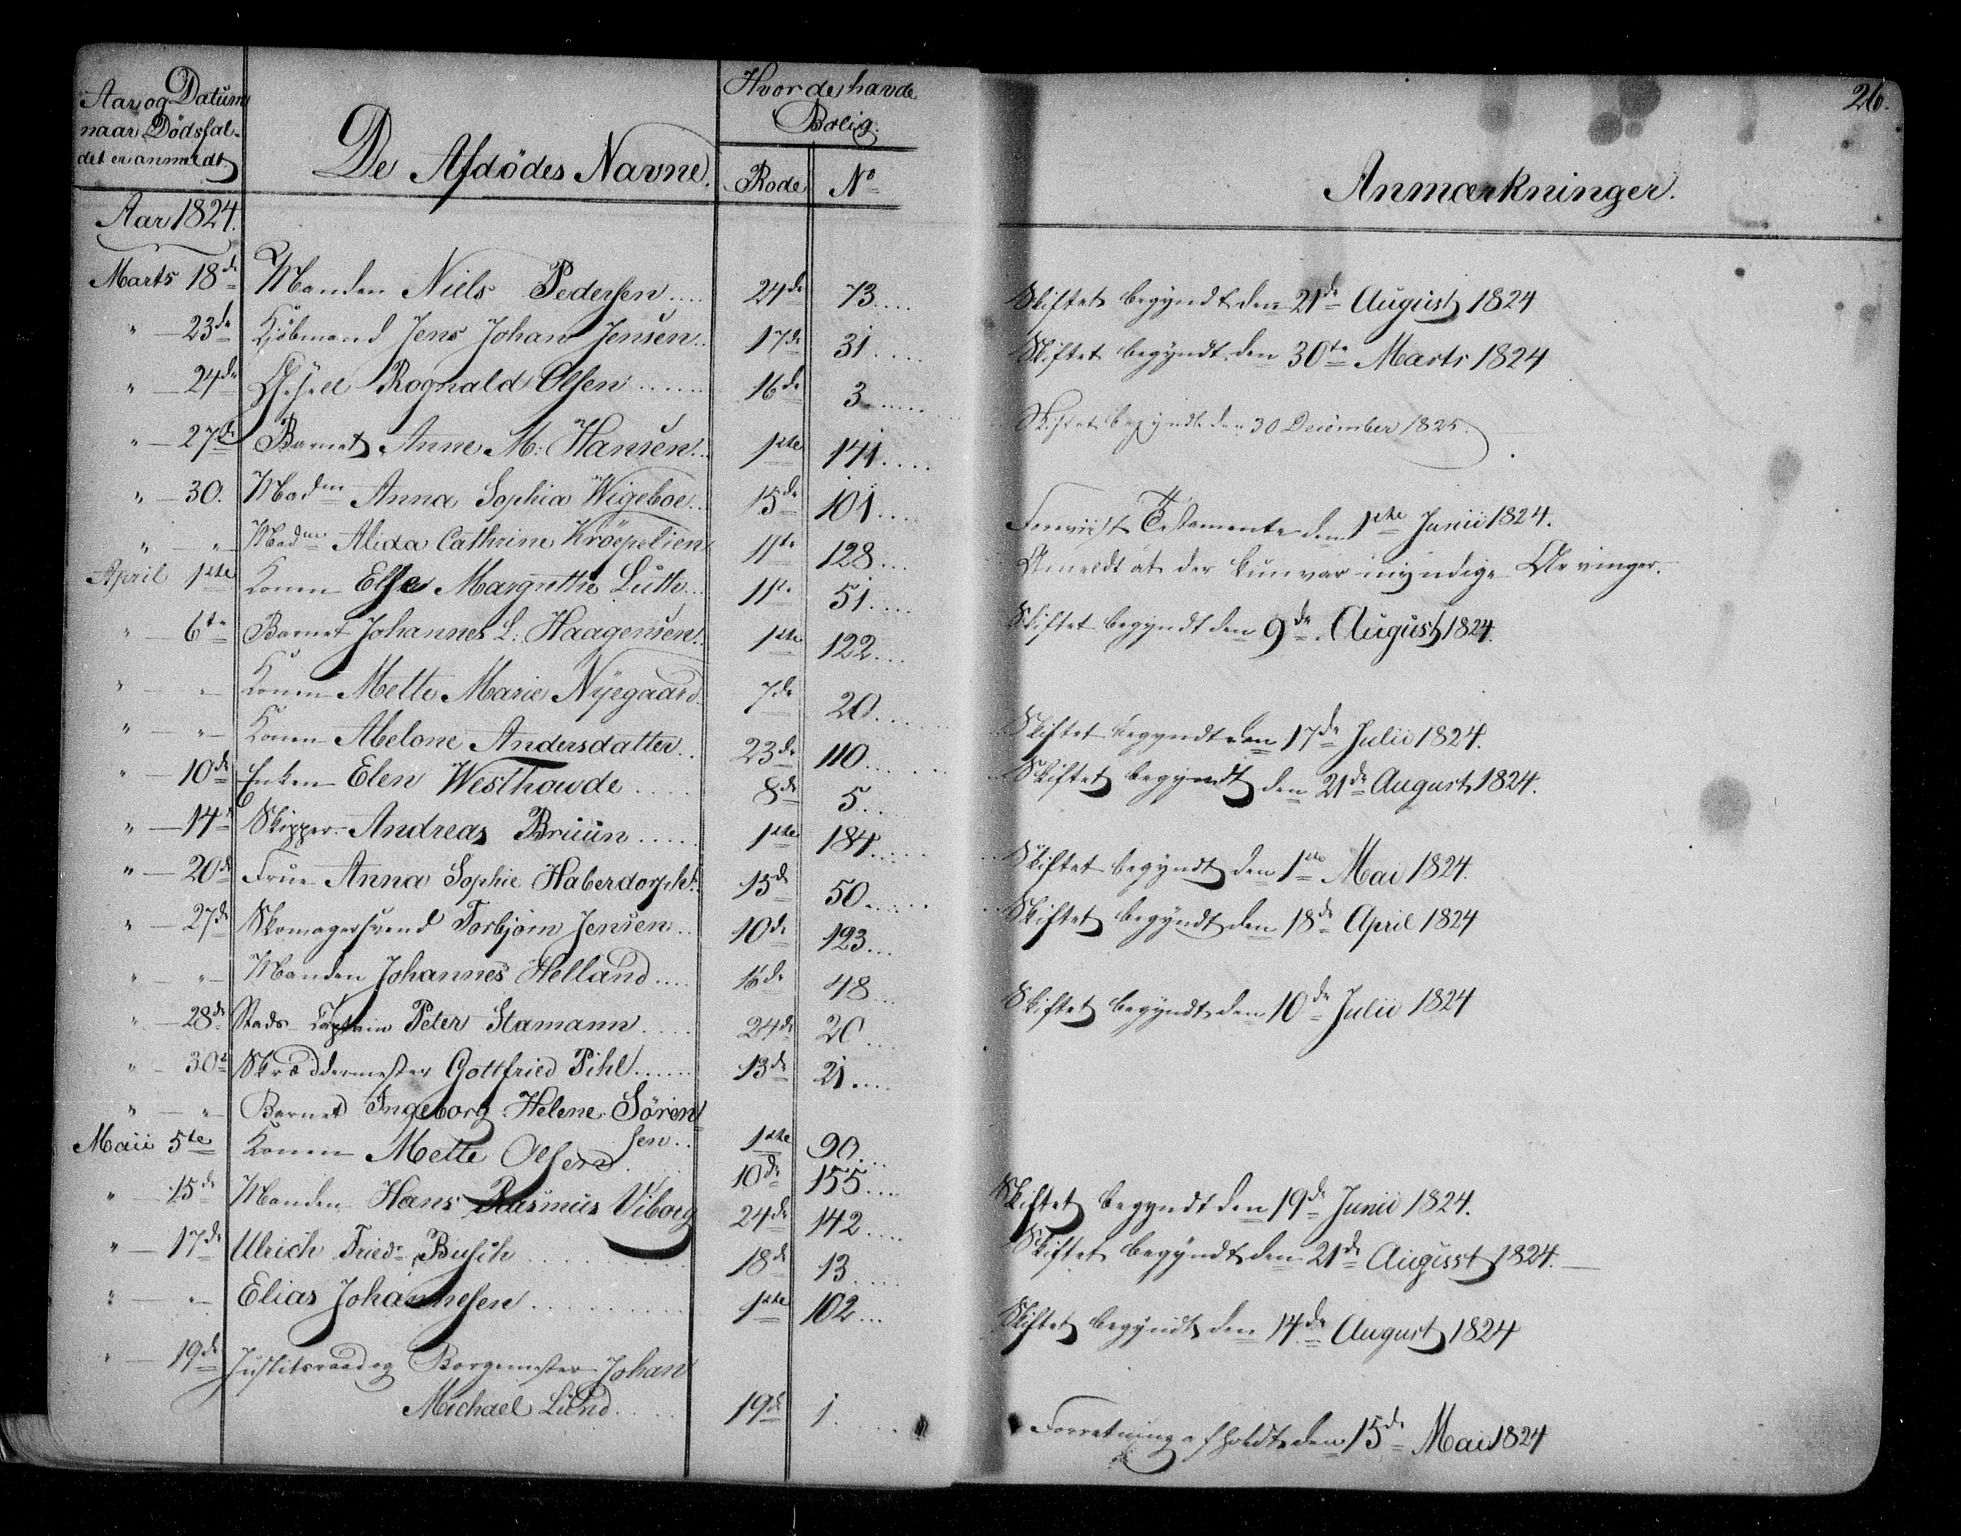 26.
Aar og Datum naar Dødsfaldet er anmeldt. | De Afdødes Navne. | Hvor de havde Bolig. Rode | No | Anmærkninger.
Aar 1824.
Marts 18de Manden Niels Pedersen .... 24de 73 .... Skiftet begyndt den 21de August 1824
" — 23de Kjøbmand Jens Johan Jensen .. 17de 31 .... Skiftet begyndt den 30te Marts 1824
" — 24de Rognald Olsen ...... 16de 3 ......
" — 27de Barnet Anne M: Hansen .. 1ste 141 .... Skiftet begyndt den 30 December 1825.
" — 30. Madm Anna Sophia Wigeboe .. 15de 101 ....
" — " — Madme Alida Cathrine Krøepelien 11te 128 ... Foreviist Testamente dem 1ste Junii 1824.
April 1ste Konen Else Margrethe Lüth ... 11te 51 .... Anmeldt at der kun var myndige Arvinger.
" — 6te Barnet Johannes L: Haagensen .. 1ste 122 ... Skiftet begyndt den 9de August 1824.
" — " — Konen Mette Marie Nyegaard . 7de 20 ......
" — " — Konen Abelone Andersdatter .. 23de 110 ...... Skiftet begyndt den 17de Julii 1824.
" — 10de Enken Elen Westhowde ..... 8de 5 ... Skiftet begyndt den 21de August 1824.
" — 14de Skipper Andreas Bruün ..... 1ste 184 ..... Skiftet begyndt den 1ste Mai 1824.
" — 20de Frue Anna Sophie Haberdorpht .. 15de 50 ...... Skiftet begyndt den 18de April 1824
" — 27de Skomagersvend Torbjørn Jensen .. 10de 123 ...
" — " — Manden Johannes Helland .... 16de 48 ... Skiftet begyndt den 10de Julii 1824
" — 28de Stads Captain Peter Stamann ..... 24de 20 ....
" — 30te Skræddermester Gottfried Pihl ...... 13de 21 ....
" — " — Barnet Ingeborg Helene Sören
sen .. 1ste 90 ...
Maii 5te Konen Mette Olsen ...... 10de 155 ....
" — 15de Manden Hans Rasmus Viborg 24de 142 .... Skiftet begyndt den 19de Junii 1824.
" — 17de Ulrich Friedr Busch ........... 18de 13 ..... Skiftet begyndt den 21de August 1824. —
" — " — Elias Johannesen ........... 1ste 102 ... Skiftet begyndt den 14de August 1824
" — 19de Justitsraad og Borgemester Johan
Michael Lund ..... 19de 1 ...... Forretning afholdt den 15de Mai 1824